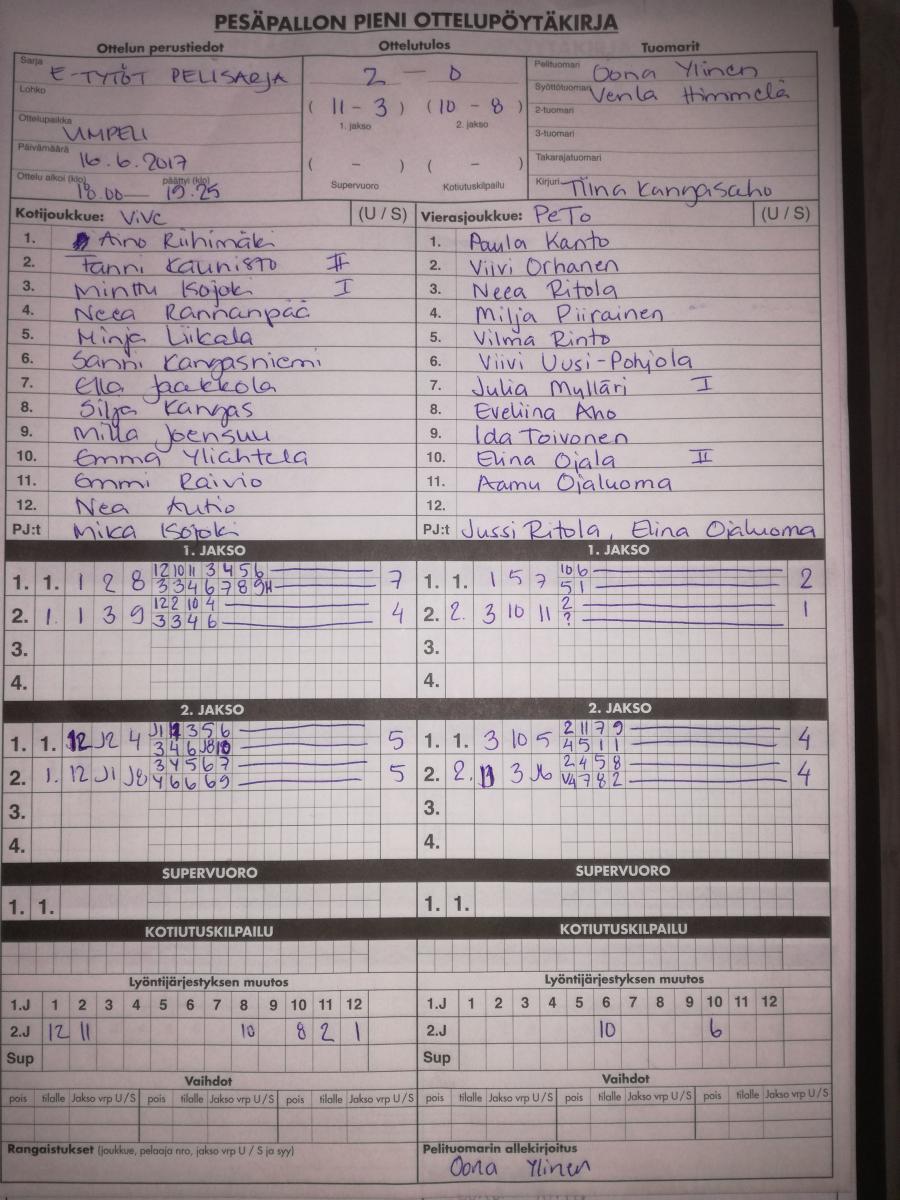 PESÄPALLON PIENI OTTELUPÖYTÄKIRJA
Ottelun perustiedot
Sarja E-TYTÖT PELISARJA
Lohko
Ottelupaikka VIMPELI
Päivämäärä 16.6.2017
Ottelu alkoi (klo) 18.00 päättyi (klo) 19.25
Ottelutulos
2 - 0
( 11 - 3 ) ( 10 - 8 )
1. jakso 2. jakso
( - ) ( - )
Supervuoro Kotiutuskilpailu
Tuomarit
Pelituomari Oona Ylinen
Syöttötuomari Venla Himmelä
2-tuomari
3-tuomari
Takarajatuomari
Kirjuri Tiina Kangasaho
Kotijoukkue: ViVe (U / S)
1. Aino Riihimäki
2. Fanni Kaunisto II
3. Minttu Isojoki I
4. Neea Rannanpää
5. Minja Liikala
6. Sanni Kangasniemi
7. Ella Jaakkola
8. Silja Kangas
9. Milla Joensuu
10. Emma Yliahtela
11. Emmi Raivio
12. Nea Autio
PJ:t Mika Isojoki
Vierasjoukkue: PeTo (U / S)
1. Paula Kanto
2. Viivi Orhanen
3. Neea Ritola
4. Milja Piirainen
5. Vilma Rinto
6. Viivi Uusi-Pohjola
7. Julia Mylläri I
8. Eveliina Aho
9. Ida Toivonen
10. Elina Ojala II
11. Aamu Ojaluoma
12.
PJ:t Jussi Ritola, Elina Ojaluoma
1. JAKSO
12 10 11 3 4 5 6
1. 1. 1 2 8 7
3 3 4 6 7 8 9H
12 2 10 4
2. 1. 1 3 9 4
3 3 4 6
3.
4.
1. JAKSO
10 6
1. 1. 1 5 7 2
5 1
2
2. 2. 3 10 11 1
?
3.
4.
2. JAKSO
1. 1. 12 J2 4 5
3 4 5 6 7
2. 1. 12 J1 J8 5
4 6 6 6 9
3.
4.
2. JAKSO
2 11 7 9
1. 1. 3 10 5 4
4 5 1 1
2 4 5 8
2. 2. 11 3 J6 4
V4 7 8 2
3.
4.
SUPERVUORO
1. 1.
SUPERVUORO
1. 1.
KOTIUTUSKILPAILU
KOTIUTUSKILPAILU
Lyöntijärjestyksen muutos
1.J 1 2 3 4 5 6 7 8 9 10 11 12
2.J 12 11 10 8 2 1
Sup
Lyöntijärjestyksen muutos
1.J 1 2 3 4 5 6 7 8 9 10 11 12
2.J 10 6
Sup
Vaihdot
pois tilalle Jakso vrp U / S pois tilalle Jakso vrp U / S pois tilalle Jakso vrp U / S
Vaihdot
pois tilalle Jakso vrp U / S pois tilalle Jakso vrp U / S pois tilalle Jakso vrp U / S
Rangaistukset (joukkue, pelaaja nro, jakso vrp U / S ja syy)
Pelituomarin allekirjoitus
Oona Ylinen